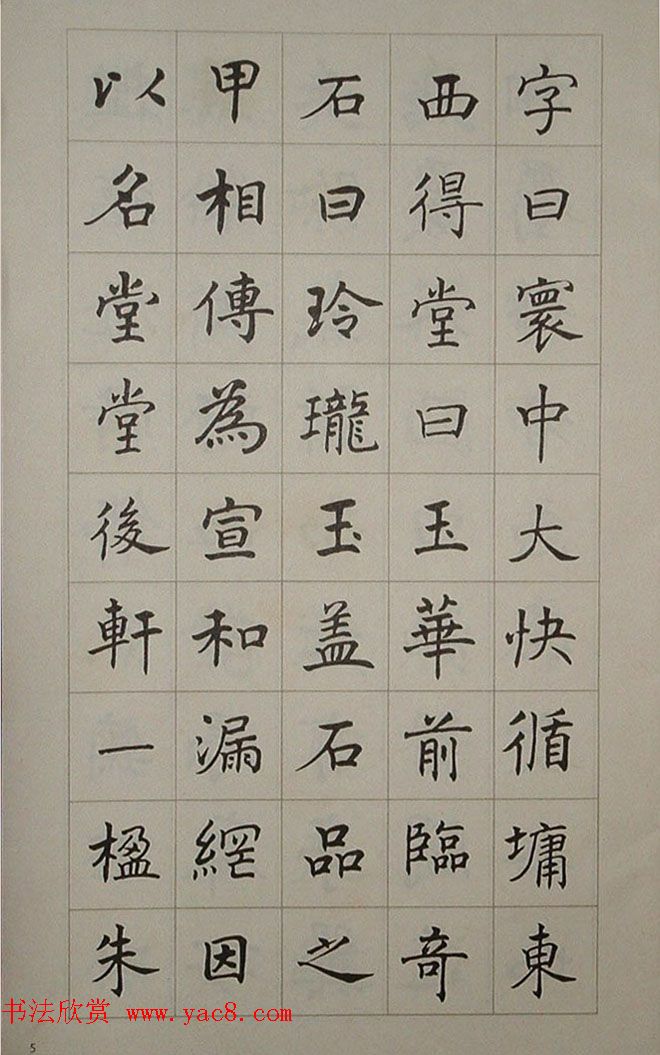 字曰寰中大快循墉東
西得堂曰玉華前臨奇
石曰玲瓏玉盖石品之
甲相傳為宣和漏網因
以名堂堂後軒一楹朱
书法欣赏 www.yac8.com
5